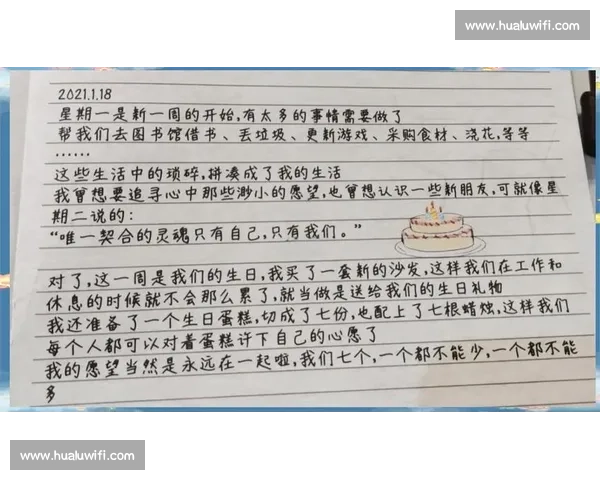 www.hualuwifi.com
2021.1.18
星期一是新一周的开始,有太多的事情需要做了
帮我们去图书馆借书、丢垃圾、更新游戏、采购食材、浇花,等等
……
这些生活中的琐碎,拼凑成了我的生活
我曾想要追寻心中那些渺小的愿望,也曾想认识一些新朋友,可就像星
期二说的:
“唯一契合的灵魂只有自己,只有我们。”
对了,这一周是我们的生日,我买了一套新的沙发,这样我们在工作和
休息的时候就不会那么累了,就当做是送给我们的生日礼物
我还准备了一个生日蛋糕,切成了七份,也配上了七根蜡烛,这样我们
每个人都可以对着蛋糕许下自己的心愿了
我的愿望当然是永远在一起啦,我们七个,一个都不能少,一个都不能
多
www.hualuwifi.com